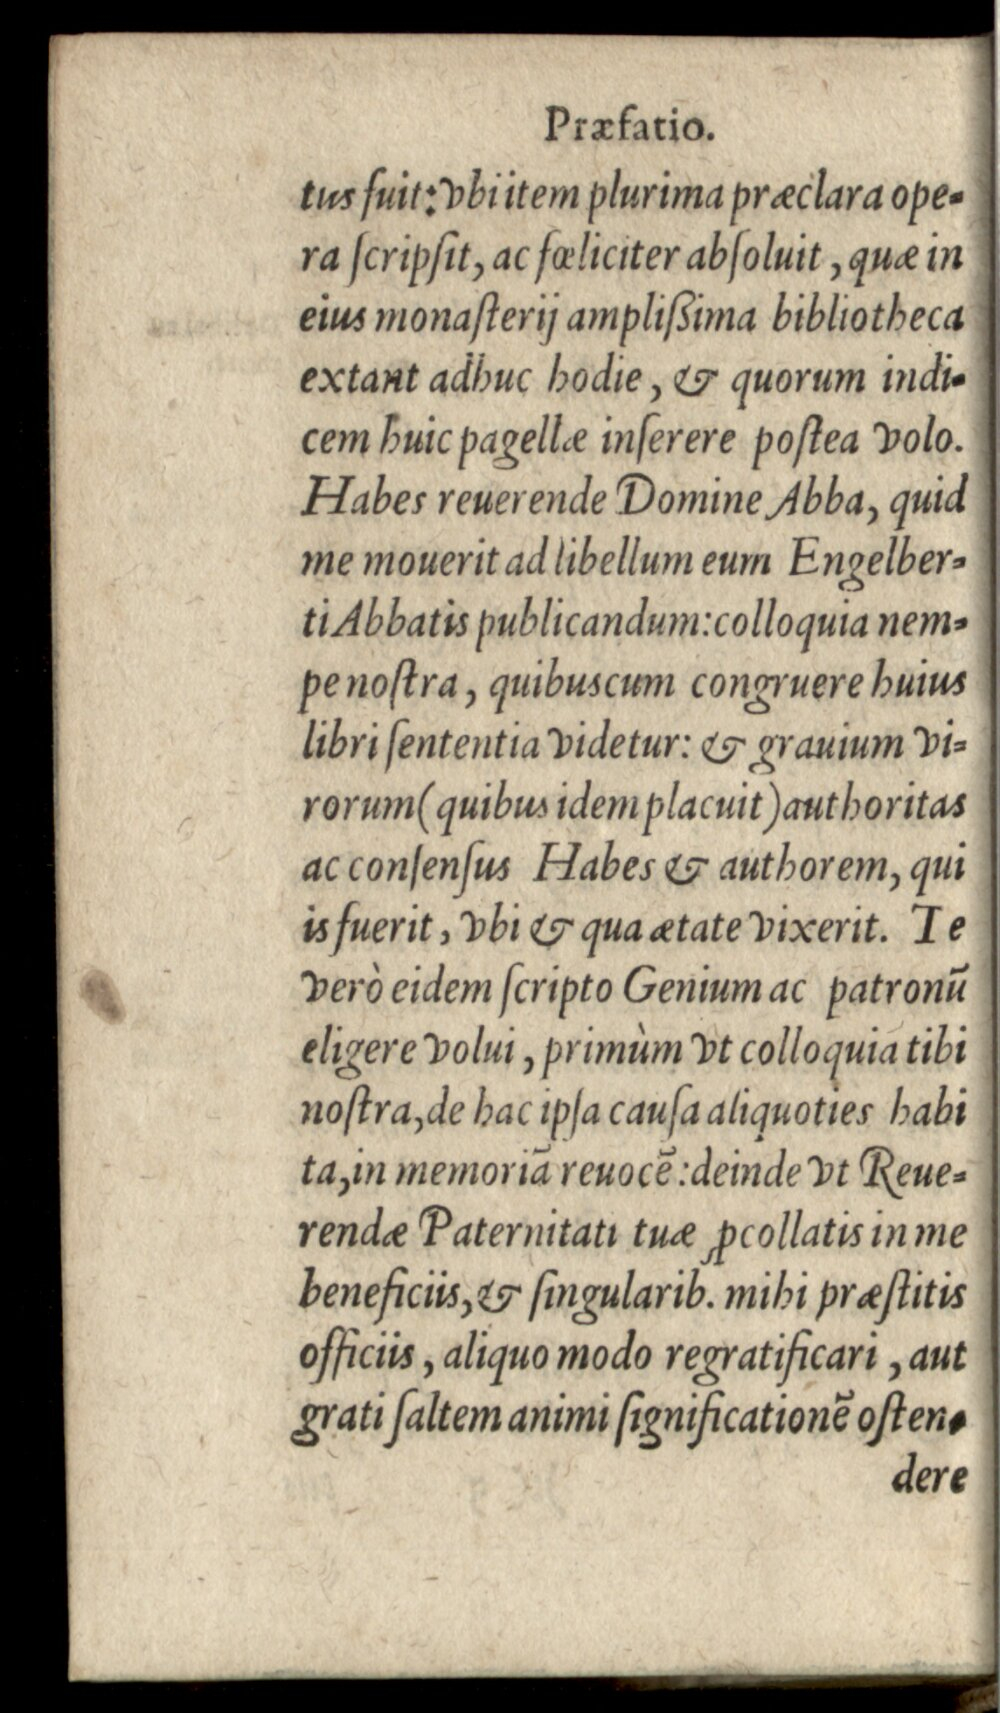 Præfatio.
tus ſuit: vbi item plurima præclara ope-
ra ſcripſit, ac fœliciter abſoluit, quæ in
eius monaſterij ampliſsima bibliotheca
extant adhuc hodie, & quorum indi-
cem huic pagellæ inſerere poſtea volo.
Habes reuerende Domine Abba, quid
me mouerit ad libellum eum Engelber-
ti Abbatis publicandum: colloquia nem-
pe noſtra, quibuscum congruere huius
libri ſententia videtur: & grauium vi-
rorum (quibus idem placuit) authoritas
ac conſenſus Habes & authorem, qui
is fuerit, vbi & qua ætate vixerit. Te
verò eidem ſcripto Genium ac patronū
eligere volui, primùm vt colloquia tibi
noſtra, de hac ipſa cauſa aliquoties habi
ta, in memoriā reuocē: deinde vt Reue-
rendæ Paternitati tuæ ꝓ collatis in me
beneficiis, & ſingularib. mihi præſtitis
officiis, aliquo modo regratificari, aut
grati ſaltem animi ſignificationē oſten-
dere